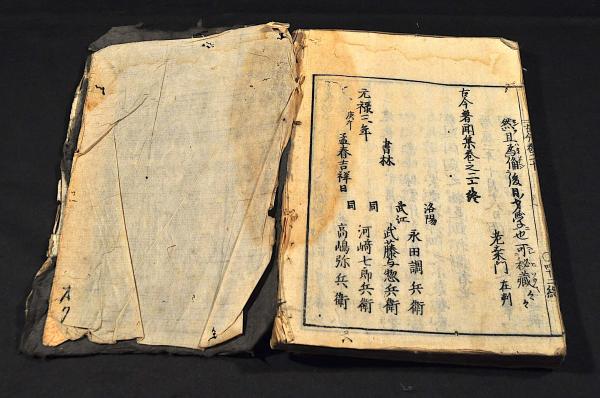 然且為備後見書写也可秘蔵々々
老桑門 在判
古今著聞集巻之二十終
元禄三年
庚午 孟春吉祥日
書林
洛陽 永田調兵衛
武江 武藤与惣兵衛
同 河崎七郎兵衛
同 高嶋弥兵衛